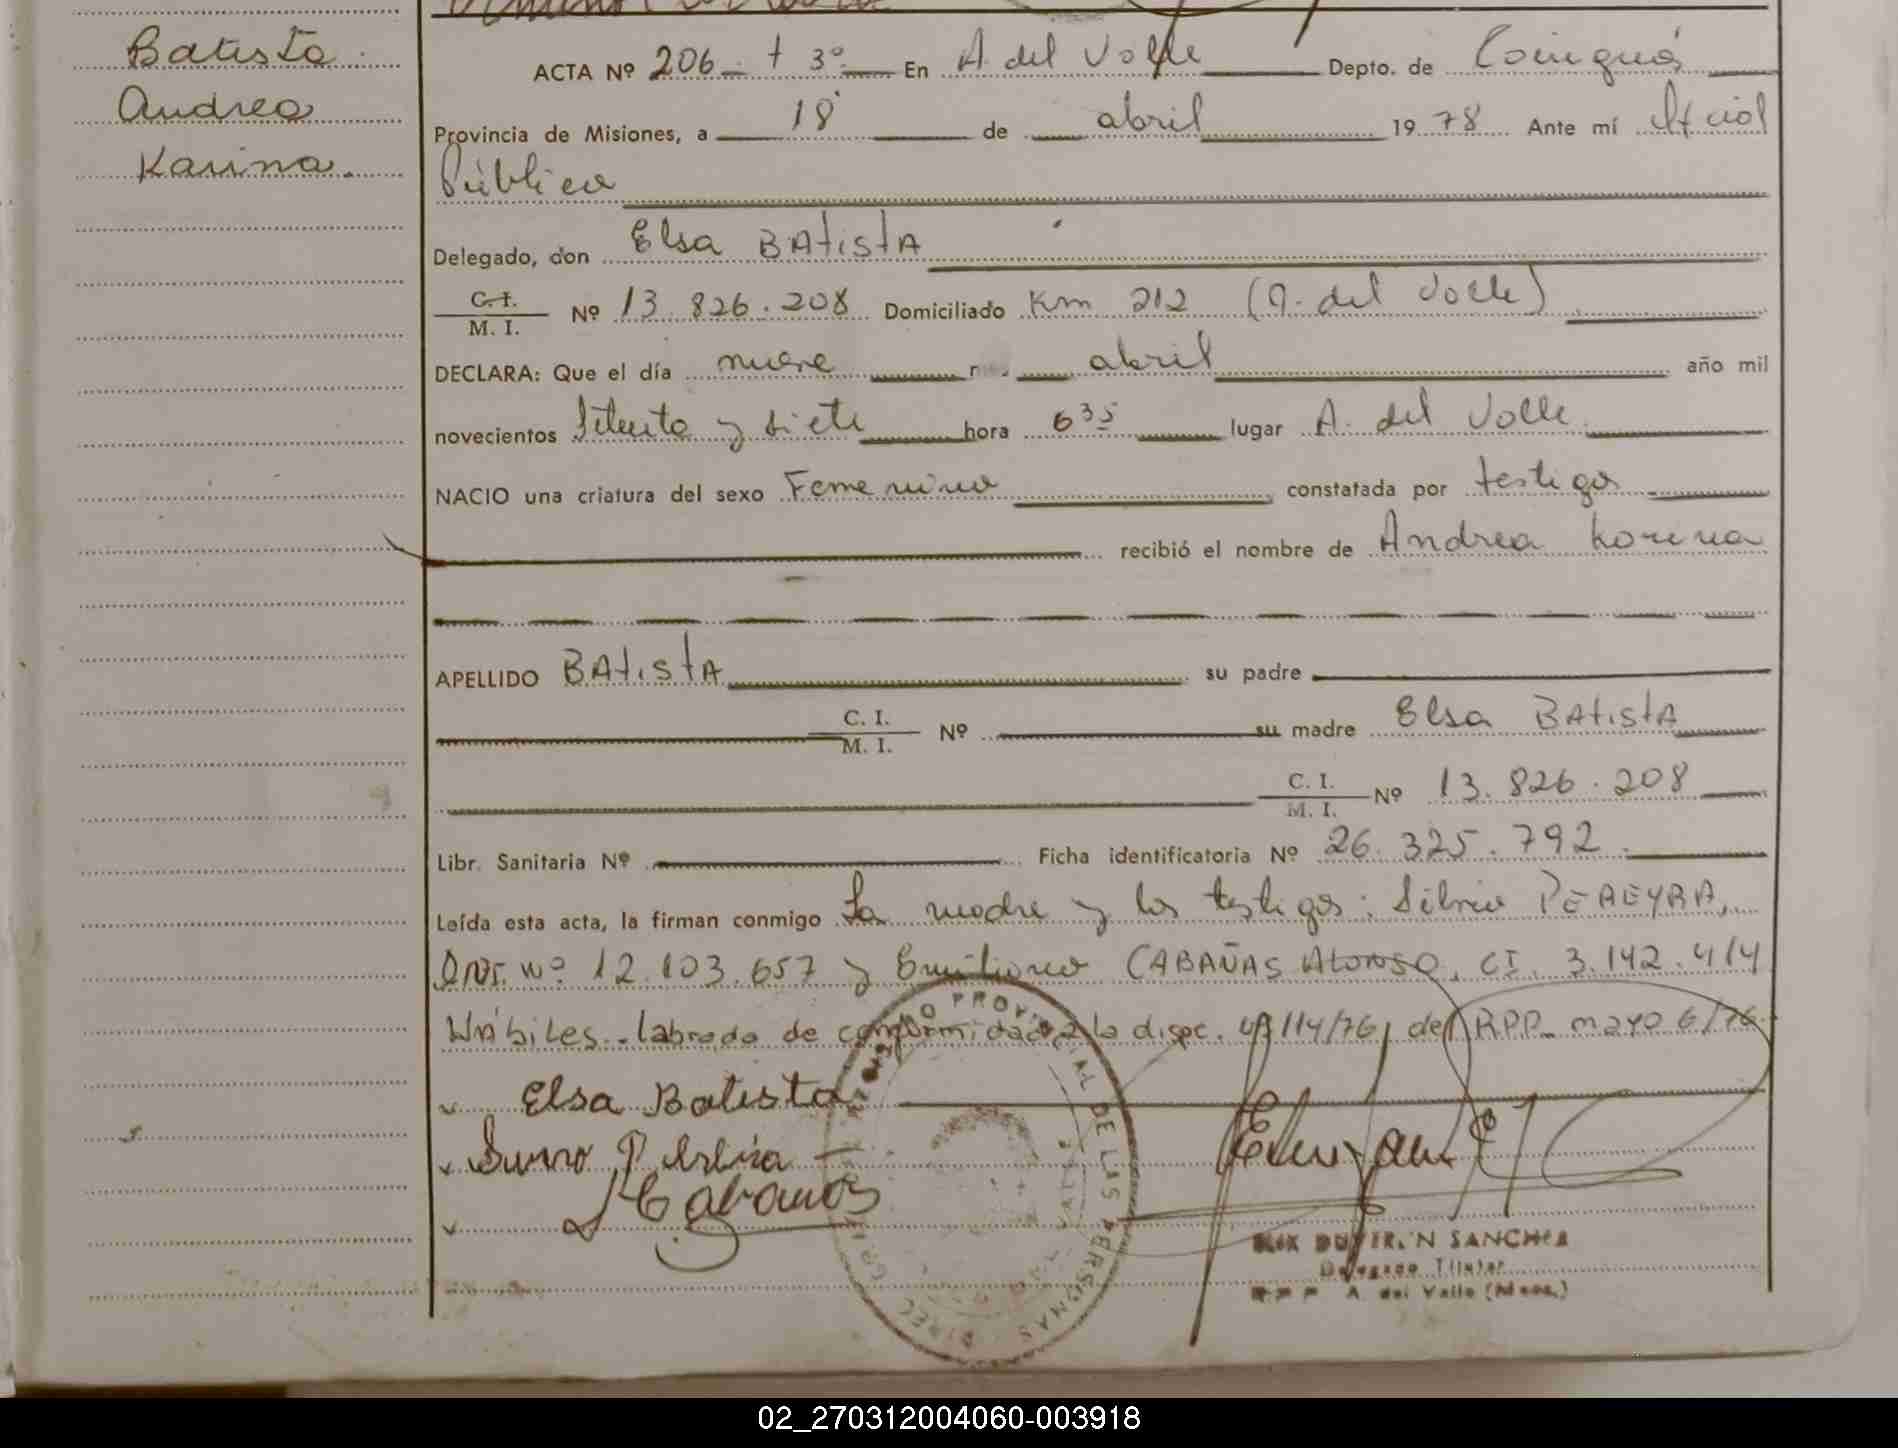 Batista
Andrea
Karina.
ACTA Nº 206 - t 3º - En A. del Valle Depto. de Cainguás
Provincia de Misiones, a 18 de abril 1978 Ante mí Oficial
Público
Delegado, don Elsa BAtistA
C. I. / M. I. Nº 13.826.208 Domiciliado Km 212 (A. del Valle)
DECLARA: Que el día nueve abril año mil
novecientos setenta y siete hora 6 35 lugar A. del Valle
NACIO una criatura del sexo Femenino constatada por testigos
recibió el nombre de Andrea Karina
APELLIDO BAtistA su padre
C. I. / M. I. Nº su madre Elsa BAtistA
C. I. / M. I. Nº 13.826.208
Libr. Sanitaria Nº Ficha identificatoria Nº 26.325.792.
Leída esta acta, la firman conmigo La madre y los testigos: Silvio PEREYRA,
DNI. nº 12.103.657 y Emiliano CABAÑAS Alonso, CI. 3.142.414
HÁbiLes.- labrada de conformidad a la dispc. 114/76 del R.P.P. mayo 6/76
Elsa Batista
Cabañas
DIREC. GRAL. REGISTRO PROVINCIAL DE LAS PERSONAS
SANCHEZ
Delegado Titular
R P P A. del Valle (Mnes.)
02_270312004060-003918